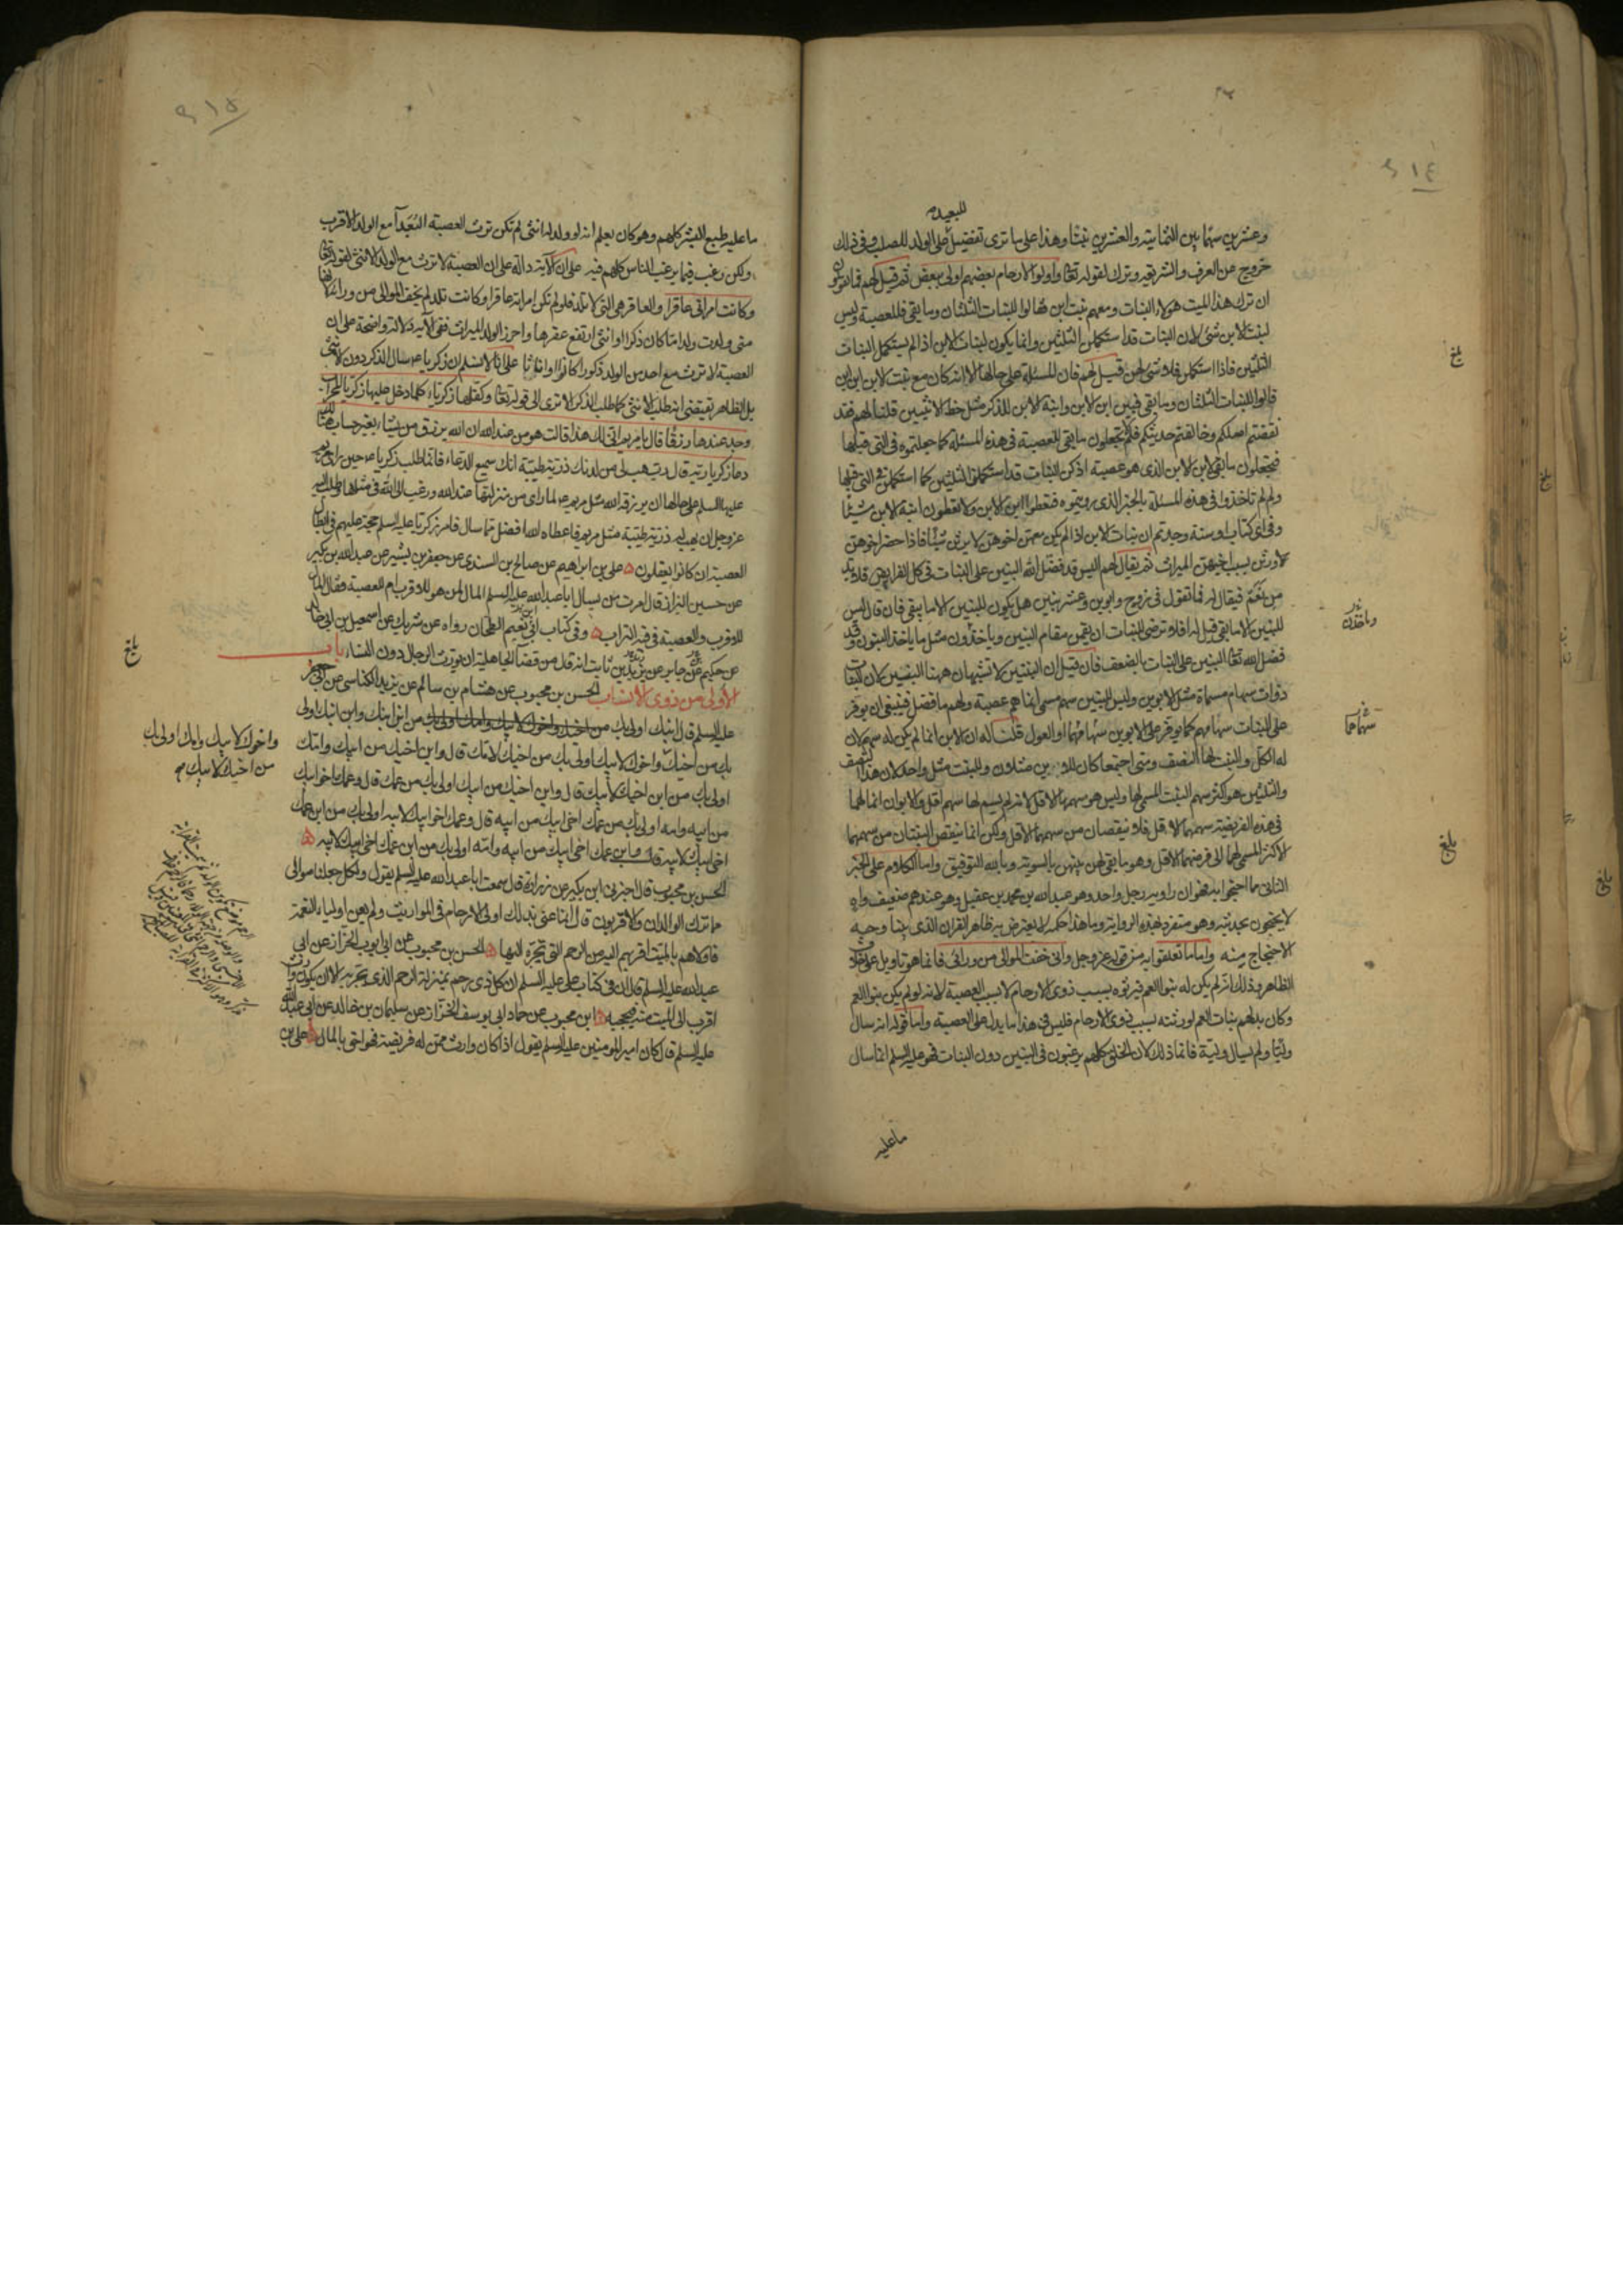 ٩١٤
للبعيد
وعشرين سهما بين الثمانية والعشرين بنتا وهذا على ما ترى تفضيل على الولد للصلب وفي ذلك
خروج عن العرف والشريعة وترك لقوله تعالى واولوا الارحام بعضهم اولى ببعض ثم قيل لهم فما تقولون
ان ترك هذا الميت هؤلاء البنات ومعهم بنت ابن فقالوا للبنات الثلثان وما بقي فللعصبة وليس
لبنت الابن شئ لان البنات قد استكملن الثلثين وانما يكون لبنات الابن اذا لم يستكمل البنات
الثلثين فاذا استكملن فلا شئ لهن قيل لهم فان المسئلة على حالها الا انه كان مع بنت الابن ابن ابن
قالوا للبنات الثلثان وما بقي فبين ابن الابن وابنة الابن للذكر مثل حظ الانثيين قلنا لهم فقد
نقضتم اصلكم وخالفتم حديثكم فلم لا تجعلون ما بقي للعصبة في هذه المسئلة كما جعلتموه في التي قبلها
فتجعلون ما بقي لابن الابن الذي هو عصبة اذ كن البنات قد استكملن الثلثين كما استكملن في التي قبلها
ولم لم تاخذوا في هذه المسئلة بالخبر الذي رويتموه فتعطوا ابن الابن ولا تعطون ابنة الابن شيئا
وفي اي كتاب وسنة وجدتم ان بنات الابن اذا لم يكن معهن اخوهن لا يرثن شيئا فاذا حضر اخوهن
ورثن بسبب اخيهن الميراث ثم يقال لهم اليس قد فضل الله البنين على البنات في كل الفرايض فلا بد
من نعم فيقال لهم فما تقول في زوج وابوين وعشر بنين هل يكون للبنين الا ما بقي فان قال ليس
للبنين الا ما بقي قيل له افلا ترضى للبنات ان يقمن مقام البنين وياخذون مثل ما ياخذ البنون وقد
فضل الله تعالى البنين على البنات بالضعف فان قيل ان البنتين لا تشبهان ههنا البنين لان البنات
ذوات سهام مسماة مثل الابوين وليس للبنين سهم مسمى انما هم عصبة ولهم ما فضل فينبغي ان يوفر
على البنات سهامهم كما يوفر على الابوين سهامهما او العول قلنا له ان الابن انما لم يكن له سهم لان
له الكل والبنت لها النصف ومتى اجتمعا كان للابن مثلان وللبنت مثل واحد لان هذا النصف
والثلثين هو اكثر سهم البنت المسمى لها وليس هو سهمها الاقل لانه لم يسم لها سهم اقل والابوان انما لهما
في هذه الفريضة سهمهما الاقل فلا ينقصان من سهمهما الاقل ولكن انما ينقص البنتان من سهمهما
الاكثر المسمى لهما الى فرضهما الاقل وهو ما بقي لهن بينهن بالسوية وبالله التوفيق واما الكلام على الخبر
الثاني مما احتجوا به فهو ان راويه رجل واحد وهو عبد الله بن محمد بن عقيل وهو عندهم ضعيف واه
لا يحتجون بحديثه وهو متفرد بهذه الرواية وما هذا حكمه لا يعترض به ظاهر القران الذي بينا وجه
الاحتجاج منه واما ما تعلقوا به من قوله عز وجل واني خفت الموالي من ورائي فانما هو تاويل على خلاف
الظاهر وذلك انه لم يكن له بنو العم فيرثوه بسبب ذوي الارحام لا بسبب العصبة لانه لو لم يكن بنو العم
وكان بدلهم بنات العم لورثنه بسبب ذوي الارحام فليس في هذا ما يدل على العصبة واما قوله انه سال
وليا ولم يسال ولية فانما ذلك لان الخلق كلهم يرغبون في البنين دون البنات فهو عليه السلم انما سال
ما عليه
بلغ
وياخذن
سهاهما
بلغ
٩١٥
ما عليه طبع البشر كلهم وهو كان يعلم انه لو ولد له انثى لم تكن ترث العصبة البعداء مع الولد الاقرب
ولكن رغب فيما يرغب الناس كلهم فيه على ان الاية دالة على ان العصبة لا ترث مع الولد الانثى لقوله تعالى
وكانت امراتي عاقرا والعاقر هي التي لا تلد فلو لم تكن امراته عاقرا وكانت تلد لم يخف الموالي من ورائه لانها
متى ولدت ولدا ما كان ذكرا او انثى ارتفع عقرها واحرز الولد الميراث ففي الاية دلالة واضحة على ان
العصبة لا ترث مع احد من الولد ذكورا كانوا او اناثا على انا لا نسلم ان زكريا ع سال الذكر دون الانثى
بل الظاهر يقتضي انه طلب الانثى كما طلب الذكر الا ترى الى قوله تعالى وكفلها زكريا كلما دخل عليها زكريا المحراب
وجد عندها رزقا قال يا مريم اني لك هذا قالت هو من عند الله ان الله يرزق من يشاء بغير حساب هنالك
دعا زكريا ربه قال رب هب لي من لدنك ذرية طيبة انك سميع الدعاء فانما طلب زكريا ع حين راى مريم
عليها السلم على حالها ان يرزقه الله مثل مريم ع لما راى من منزلتها عند الله ورغب الى الله في مثلها وطلب اليه
عز وجل ان يهب له ذرية طيبة مثل مريم فاعطاه الله افضل مما سال فامر زكريا عليه السلم حجة عليهم في ابطال
العصبة ان كانوا يعقلون ه علي بن ابراهيم عن صالح بن السندي عن جعفر بن بشير عن عبد الله بن بكير
عن حسين البزاز قال امرت من يسال ابا عبد الله عليه السلم المال لمن هو للاقرب ام العصبة فقال المال
للاقرب والعصبة في فيه التراب ه وفي كتاب ابي نعيم الطحان رواه عن شريك عن اسمعيل بن ابي خالد
عن حكيم عن جابر عن زيد بن ثابت انه قال من قضاء الجاهلية ان يورث الرجال دون النساء باب
الاولى من ذوي الانساب الحسن بن محبوب عن هشام بن سالم عن يزيد الكناسي عن ابي جعفر
عليه السلم قال ابنك اولى بك من ابن ابنك وابن ابنك اولى
بك من اخيك واخوك لابيك وامك اولى بك من اخيك لامك قال وابن اخيك من ابيك وامك
اولى بك من ابن اخيك لابيك قال وابن اخيك من ابيك اولى بك من عمك قال وعمك اخو ابيك
من ابيه وامه اولى بك من عمك اخي ابيك من ابيه قال وعمك اخو ابيك لابيه اولى بك من ابن عمك
اخي ابيك لابيه قال وابن عمك اخي ابيك من ابيه وامه اولى بك من ابن عمك اخي ابيك لابيه ه
الحسن بن محبوب قال اخبرني ابن بكير عن زرارة قال سمعت ابا عبد الله عليه السلم يقول ولكل جعلنا موالي
مما ترك الوالدان والاقربون قال انما عنى بذلك اولي الارحام في المواريث ولم يعن اولياء النعمة
فاولاهم بالميت اقربهم اليه من الرحم التي تجره اليها ه الحسن بن محبوب عن ابي ايوب الخزاز عن ابي
عبد الله عليه السلم قال ان في كتاب علي عليه السلم ان كل ذي رحم بمنزلة الرحم الذي يجر به الا ان يكون وارث
اقرب الى الميت منه فيحجبه ه ابن محبوب عن حماد ابي يوسف الخزاز عن سليمان بن خالد عن ابي عبد الله
عليه السلم قال كان امير المومنين عليه السلم يقول اذا كان وارث ممن له فريضة فهو احق بالمال ه علي بن
بلغ
واخوك لابيك وامك اولى بك
من اخيك لابيك